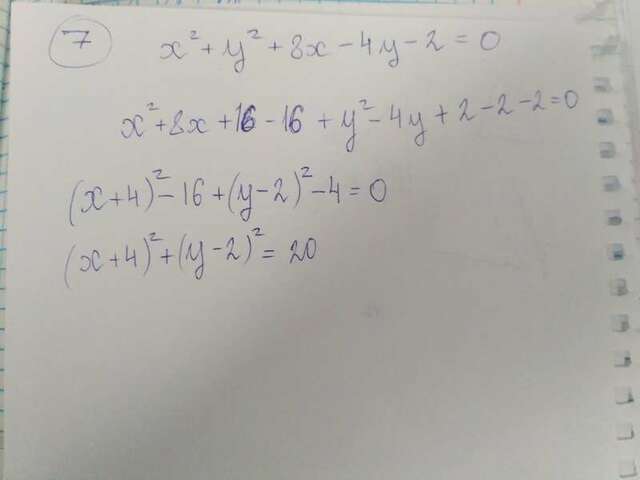 7 x² + y² + 8x - 4y - 2 = 0
x² + 8x + 16 - 16 + y² - 4y + 2 - 2 - 2 = 0
(x+4)² - 16 + (y-2)² - 4 = 0
(x+4)² + (y-2)² = 20